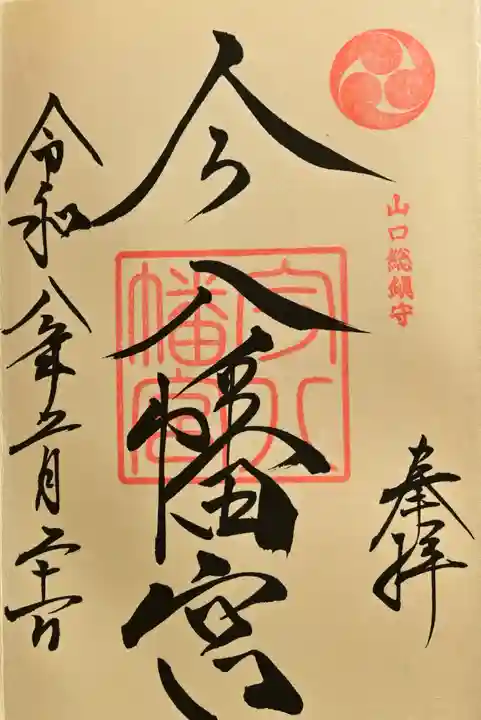 山口総鎮守
奉拝
今八幡宮
今八幡宮
令和八年五月二十六日